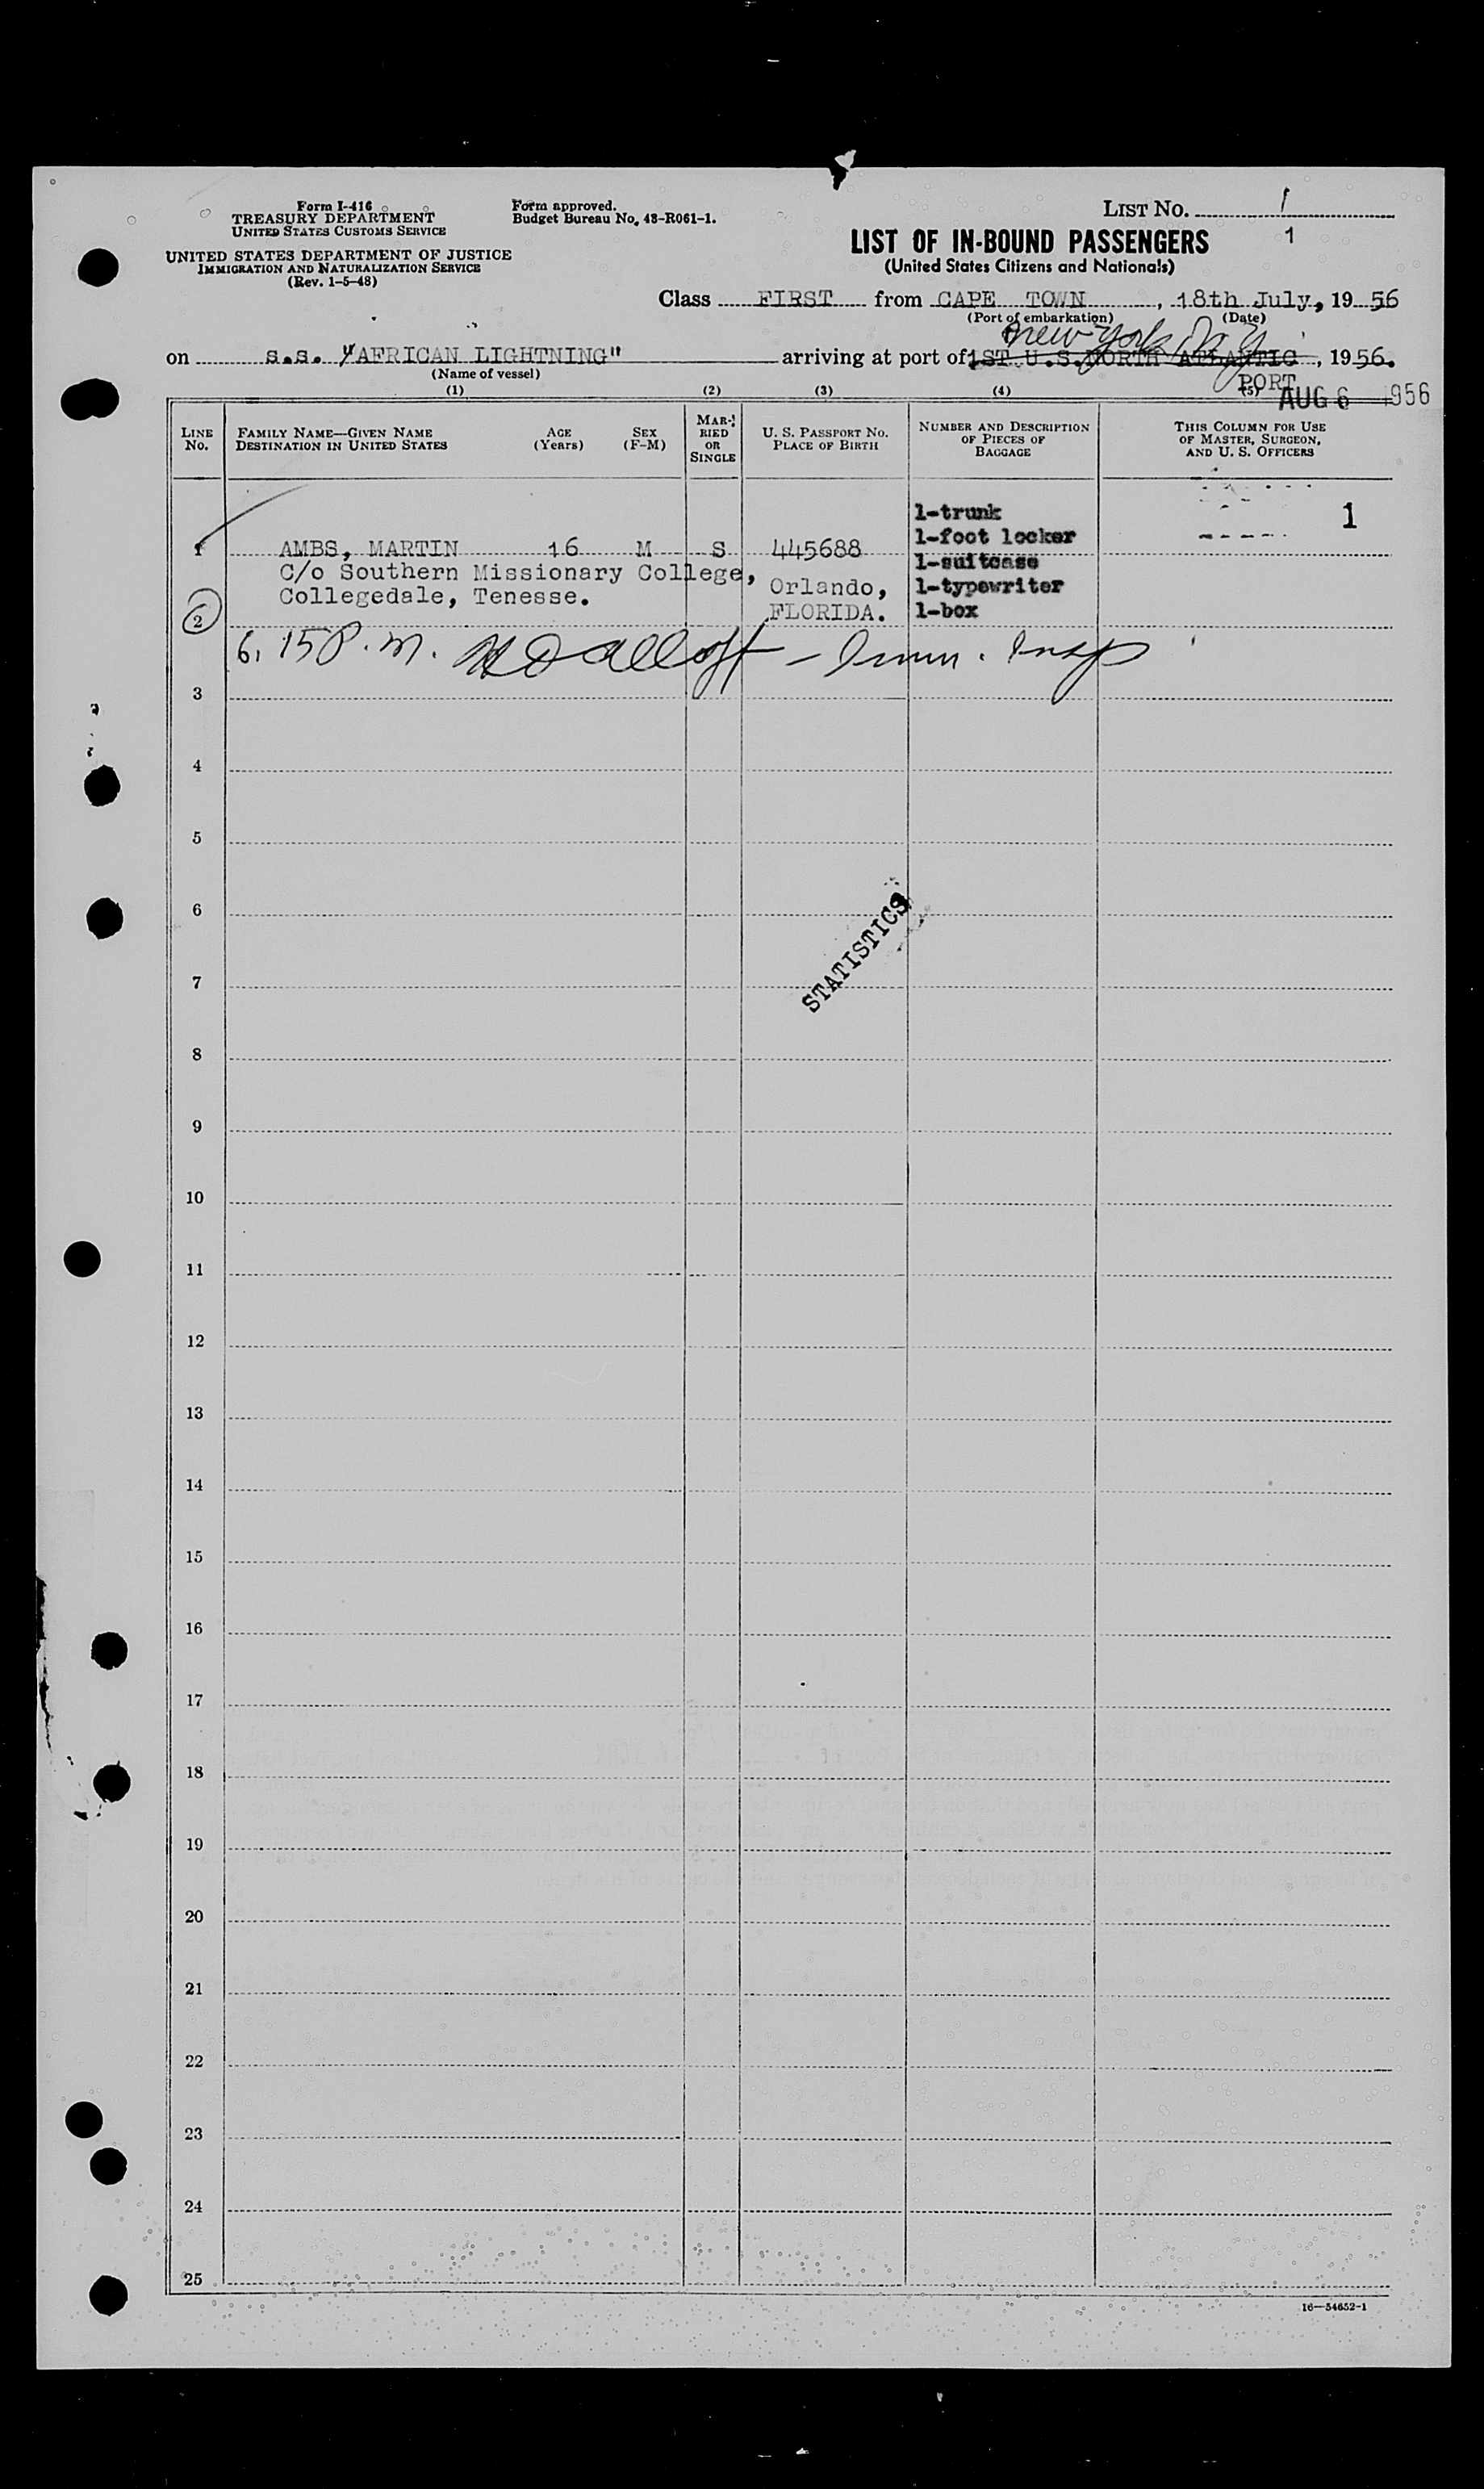 Form I-416
TREASURY DEPARTMENT
UNITED STATES CUSTOMS SERVICE
UNITED STATES DEPARTMENT OF JUSTICE
IMMIGRATION AND NATURALIZATION SERVICE
(Rev. 1-5-48)
Form approved.
Budget Bureau No. 43-R061-1.
LIST NO. 1
1
LIST OF IN-BOUND PASSENGERS
(United States Citizens and Nationals)
Class FIRST from CAPE TOWN, 18th July, 19 56
(Port of embarkation) (Date)
New York N.Y.
on s.s. "AFRICAN LIGHTNING" arriving at port of 1ST U.S. NORTH ATLANTIC, 19 56.
(Name of vessel) PORT
AUG 6 1956
(1) (2) (3) (4) (5)
LINE NO.
FAMILY NAME—GIVEN NAME
DESTINATION IN UNITED STATES
AGE (Years)
SEX (F-M)
MARRIED OR SINGLE
U. S. PASSPORT NO.
PLACE OF BIRTH
NUMBER AND DESCRIPTION OF PIECES OF BAGGAGE
THIS COLUMN FOR USE OF MASTER, SURGEON, AND U. S. OFFICERS
1 AMBS, MARTIN 16 M S 445688
C/o Southern Missionary College,
Collegedale, Tenesse.
Orlando,
FLORIDA.
1-trunk
1-foot locker
1-suitcase
1-typewriter
1-box
1
2
6.15 P.m. – Imm. Insp
3
4
5
6
STATISTICS
7
8
9
10
11
12
13
14
15
16
17
18
19
20
21
22
23
24
25
16—54652-1